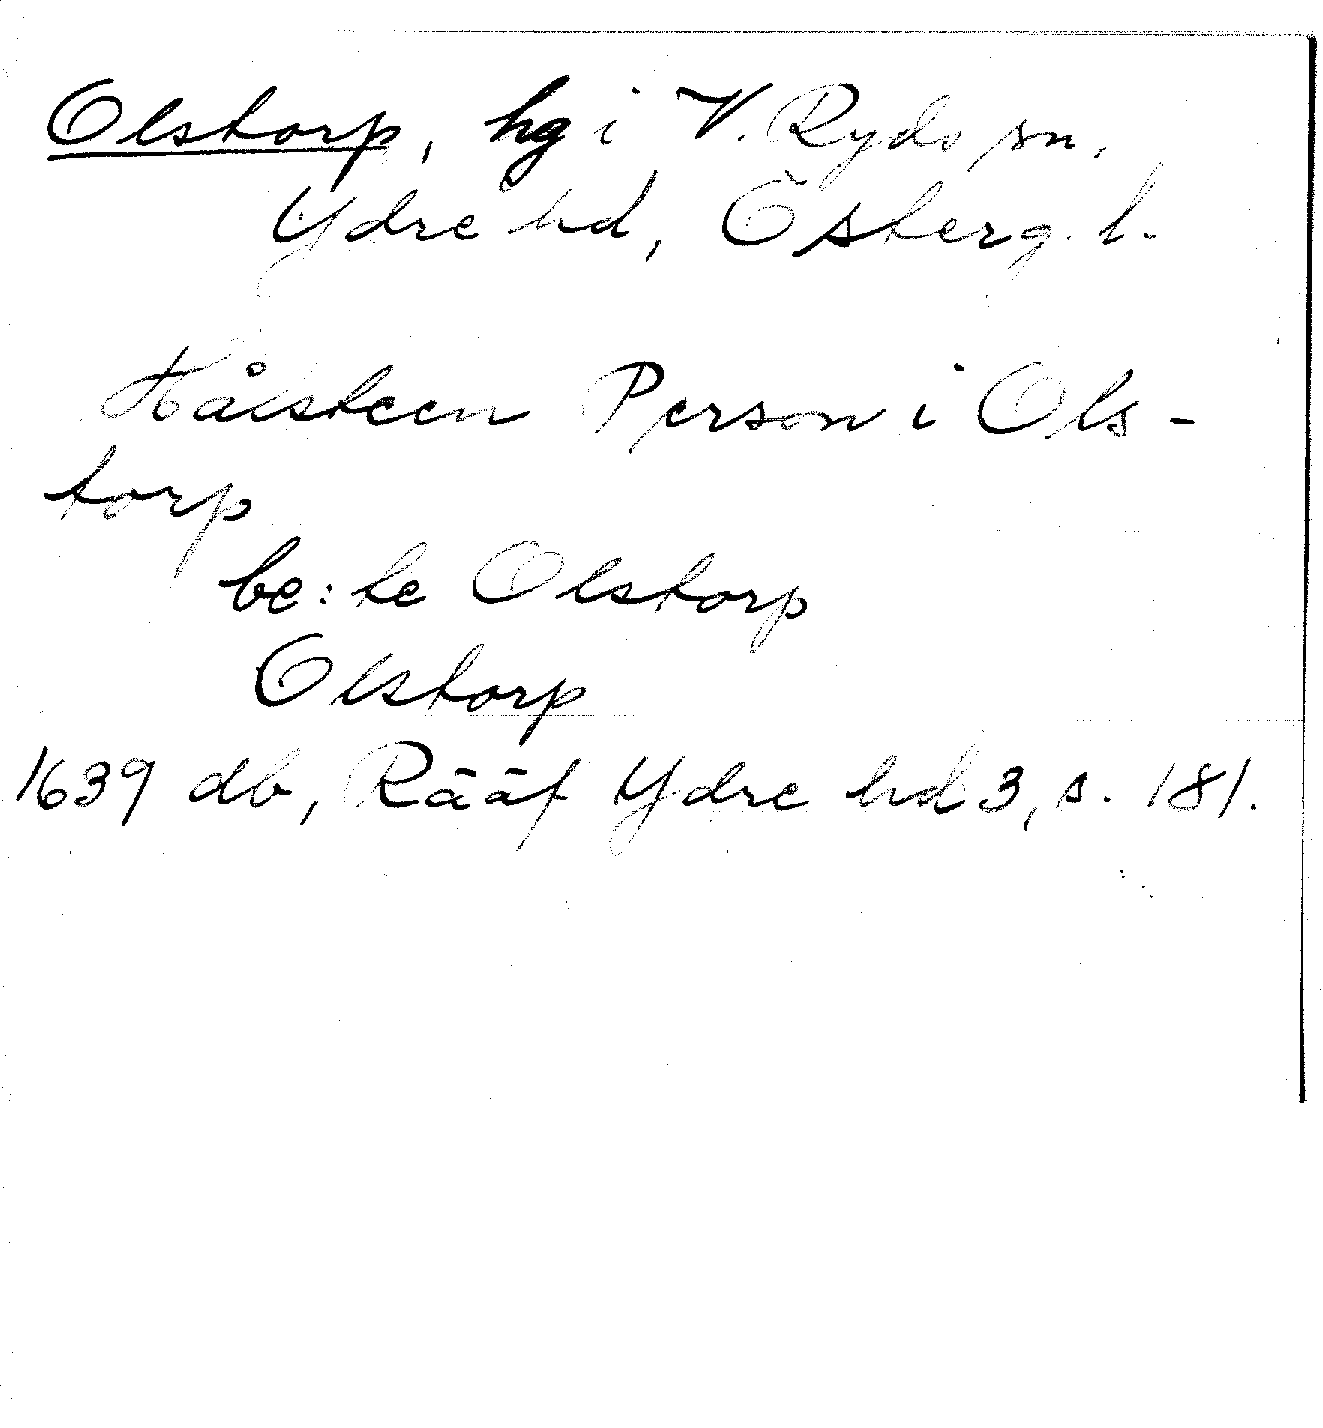 Olstorp, hg i V. Ryds sn,
Ydre hd, Österg. l.
Hålsteen Person i Ols-
torp
be: te Olstorp
Olstorp
1639 db, Rääf Ydre hd 3, s. 181.